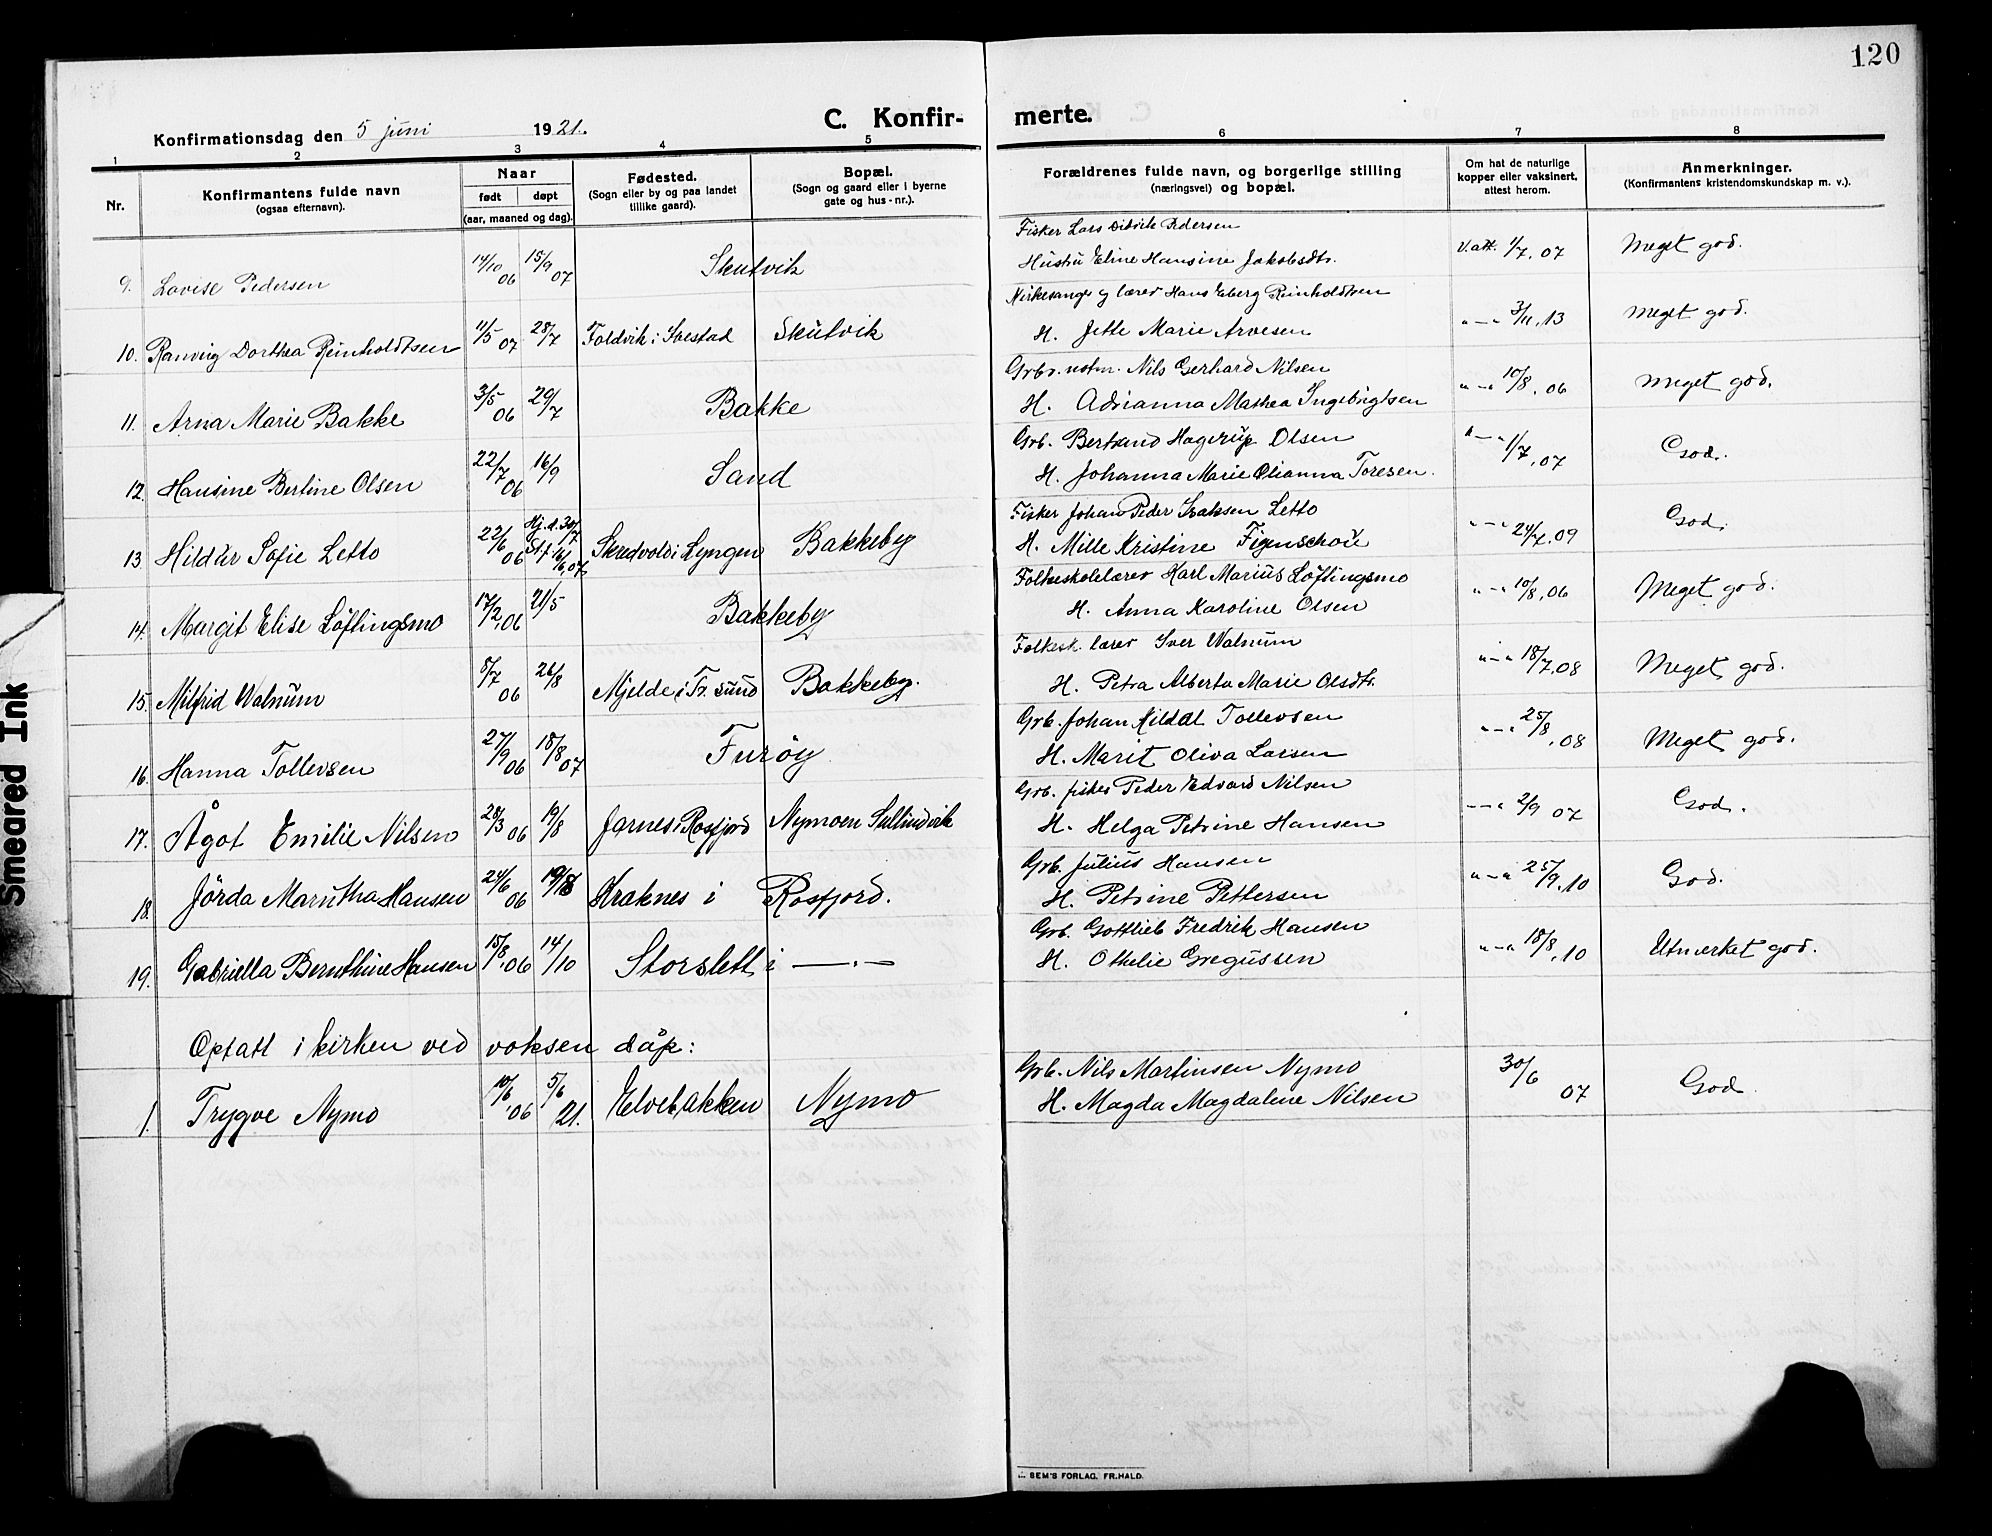 120
Konfirmationsdag den 5 juni 1921.
C. Konfir-merte.
1 2 3 4 5 6 7 8
Nr.
Konfirmantens fulde navn
(ogsaa efternavn).
Naar
født døpt
(aar, maaned og dag).
Fødested.
(Sogn eller by og paa landet
tillike gaard).
Bopæl.
(Sogn og gaard eller i byerne
gate og hus-nr.).
Forældrenes fulde navn, og borgerlige stilling
(næringsvei) og bopæl.
Om hat de naturlige
kopper eller vaksinert,
attest herom.
Anmerkninger.
(Konfirmantens kristendomskundskap m. v.).
Fisker Lars Ditvik Pedersen
9. Lovise Pedersen 14/10 06 15/9 07 Skutvik Hustru Eline Hansine Jakobsdtr. V. att. 1/7, 07 Meget god.
Kirkesanger og lærer Hans Eberg Reinholdtsen
10. Ranveig Dorthea Reinholdtsen 11/5 07 28/7 Foldvik i Ibestad Skutvik H. Jette Marie Arvesen "—" 3/11, 13 Meget god.
Grbr. notm. Nils Gerhard Nilsen
11. Arna Marie Bakke 3/5 06 29/7 Bakke H. Adrianna Mathea Ingebrigtsen "—" 10/8, 06 Meget god.
Grb. Bertrand Hagerup Olsen
12. Hansine Berline Olsen 22/7 06 16/9 Sand H. Johanna Marie Olianna Toresen. "—" 1/7, 07 God.
Fisker Johan Peder Isaksen Letto
13. Hildur Sofie Letto 22/6 06 Hj. d. 30/7 St. f. 16/6, 07 Skredvold i Lyngen Bakkeby H. Mille Kristine Figenschou "—" 24/7. 09 God.
Folkeskolelærer Karl Marius Løflingsmo
14. Margit Elise Løflingsmo 17/2, 06 21/5 Bakkeby H. Anna Karoline Olsen "—" 10/8, 06 Meget god.
Folkesk. lærer Iver Walnum
15. Milfrid Walnum 8/7 06 26/8 Mjelde i Tr. sund Bakkeby. H. Petra Alberta Marie Olsdtr. "—" 18/7. 08 Meget god.
Grb. Johan Kildal Tollevsen
16. Hanna Tollevsen 27/9 06 18/8 07 Furøy H. Marit Oliva Larsen "—" 25/8, 08 Meget god.
Grb. fisker Peder Edvard Nilsen
17. Ågot Emilie Nilsen 28/3 06 19/8 Jarnes i Rosfjord Nymoen Sultindvik H. Helga Petrine Hansen "—" 2/9 07 God.
Grb. Julius Hansen
18. Jörda Marutha Hansen 24/6 06 19/8 Kraknes i Rosfjord. H. Petrine Pettersen "—" 25/9, 10 God.
Grb. Gottlieb Fredrik Hansen
19. Gabriella Bernthine Hansen 15/8, 06 14/10 Storslett i —.— H. Othelie Gregussen "—" 18/8, 10 Utmerket god.
Optatt i kirken ved voksen dåp:
Grb. Nils Martinsen Nymo
1. Trygve Nymo 10/6, 06 5/6 21. Elvebakken Nymo H. Magda Magdalene Nilsen 30/6 07 God.
SEM'S FORLAG, FR.HALD.
Smeared Ink